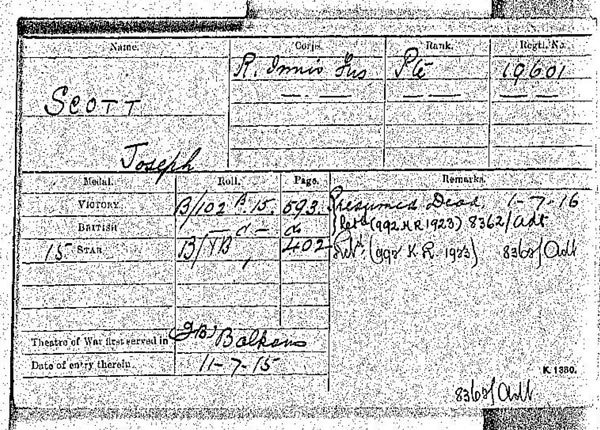 Name. Corps. Rank. Regtl. No.
SCOTT R. Innis Fus Pte 19601
Joseph
Medal. Roll. Page. Remarks.
VICTORY B/102 B.15. 593. Presumed Dead 1-7-16
BRITISH — do — do (992 K R 1923) 8362/Adt
15 STAR B/1B 402 (992 K. R. 1923) 8368/Adt
Theatre of War first served in (2B) Balkans
Date of entry therein 11-7-15
K. 1380.
8368/Adt